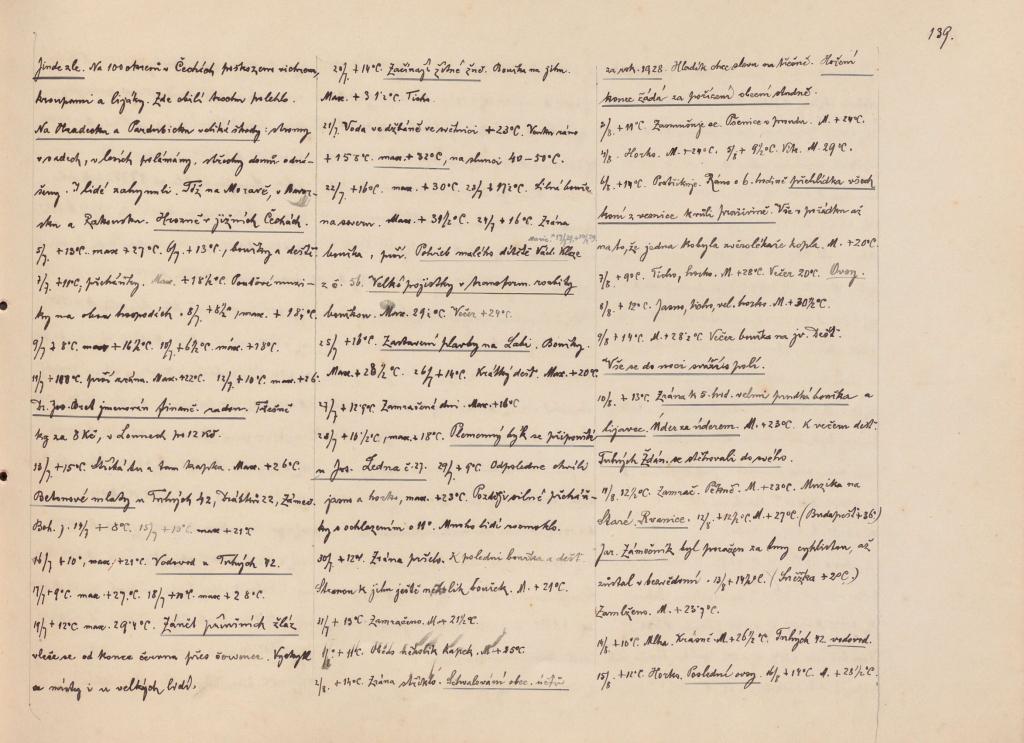 139.
Jinde zle. Na 100 okresů v Čechách poškozeno vichrem,
kroupami a lijáky. Zde obilí trochu polehlo.
Na Hradecku a Pardubicku veliké škody: stromy
v sadech, v lesích polámány, střechy domů odná-
šeny. I lidé zahynuli. Též na Moravě, v Bavor-
sku a Rakousku. Hrozně v jižních Čechách.
5/7. +13°C. max +27°C. 6/7. +13°C., bouřky a déšť.
7/7. +11°C, přeháňky. Max. +18½°C. Pouťové muzi-
ky na obou hospodách. 8/7. +8½°, max. +18½°C.
9/7 +8°C. max +16½°C. 10/7 +6½°C. max. +18°C.
11/7 +10°C. prší zrána. Max. +22°C. 12/7 +10°C. max. +26
Dr. Jos. jmenován finanč. radou. Třešně
kg za 8 Kč, v Lounech po 12 Kč.
13/7 +15°C. Stříká tu a tam kapka. Max. +26°C.
Betonové mlaty u Trhých 42, 22, Zámeč.
Boh. j. 14/7 +8°C. 15/7 +10°C. max +21°C
16/7 +10°, max. +21°C. Vodovod u Trhých 42.
17/7 +9°C. max. +27°C. 18/7 +10°C. max +28°C.
19/7 +12°C. max. 29'4°C. Zánět příušních žláz
vleče se od konce června přes červenec. Vyskytl
se místy i u velkých lidí.
20/7. +14°C. Začínají žitné žně. Bouřka na jihu.
Max. +31½°C. Ticho.
21/7. Voda ve džbáně ve světnici +23°C. Venku ráno
+15°C. max. +32°C, na slunci 40–50°C.
22/7 +16°C. max. +30°C. 23/7 +17½°C. Silná bouře
na severu. Max. +31½°C. 24/7 +16°C. Zrána
bouřka, prší. Pohřeb malého dítěte Václ.
z č. 56. Velké pojistky v transform. rozbity
bouřkou. Max. 29½°C. Večer +24°C.
25/7 +16°C. Zastavení plavby na Labi. Bouřky.
Max. +28½°C. 26/7 +14°C. Krátký déšť. Max. +20°C.
27/7 +12'9°C. Zamračené dni. Max. +16°C
28/7 +10½°C, max. +18°C. Plemenný býk se připouští
u Jos. Ledna č. 27. 29/7 +9°C. Odpoledne chvíli
jasno a horko, max. +23°C. Později silné přeháň-
ky s ochlazením o 11°. Mnoho lidí zmoklo.
30/7 +12°. Zrána pršelo. K polední bouřka a déšť.
Stranou k jihu ještě několik bouřek. M. +21°C.
31/7 +13°C. Zamračeno. M. +21½°C.
1/8 +11°C. několik kapek. M. +25°C.
2/8. +14°C. Zrána stříklo. Schvalování obec. účtů
za rok. 1928. Hladík chce slevu na třešně. Hoření
konec žádá za pořízení obecní studně.
3/8. +11°C. Zasmušuje se. Pšenice v proudu. M. +24°C.
4/8. Horko. M. +29°C. 5/8 +9½°C. Vítr. M. 29°C.
6/8. +14°C. Postřikuje. Ráno o 6. hodině přehlídka všech
koní z vesnice kvůli prašivině. Vše v pořádku až
na to, že jedna kobyla zvěrolékaře kopla. M. +20°C.
7/8 +9°C. Ticho, horko. M. +28°C. Večer 20°C. Ovesy.
8/8. +12°C. Jasno, ticho, vel. horko. M. +30½°C.
9/8 +14°C. M. +28½°C Večer bouřka na jv. Déšť.
Vše se do noci sváží s polí.
10/8. +13°C. Zrána k 5. hod. velmi prudká bouřka a
lijavec. Úder za úderem. M. +23°C. K večeru déšť.
Trhých Ždán. se stěhovali do svého.
11/8. 12½°C. Zamrač. Pěkně. M. +23°C. Muzika na
Staré. 12/8. +12½°C. M. +27°C. (Budapešť +36°)
Jar. Zámečník byl poražen za tmy cyklistou, až
zůstal v bezvědomí. 13/8 +14½°C. (Sněžka +2°C.)
Zamlženo. M. +23'9°C.
14/8. +10°C. Mlha. Krásně. M. +26½°C. Trhých 42 vodovod.
15/8. +12°C. Horko. Poslední ovesy. 16/8 +14°C. M. +28½°C.